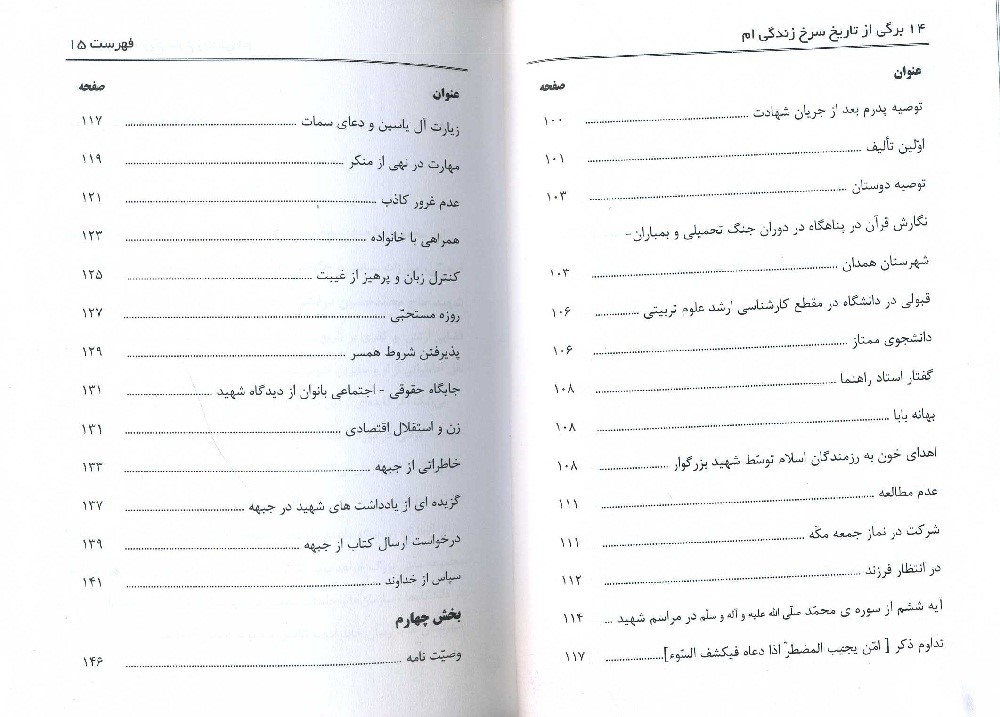 ۱۴ برگی از تاریخ سرخ زندگی ام
عنوان صفحه
توصیه پدرم بعد از جریان شهادت ۱۰۰
اوّلین تألیف ۱۰۱
توصیه دوستان ۱۰۳
نگارش قرآن در پناهگاه در دوران جنگ تحمیلی و بمباران-
شهرستان همدان ۱۰۳
قبولی در دانشگاه در مقطع کارشناسی ارشد علوم تربیتی ۱۰۶
دانشجوی ممتاز ۱۰۶
گفتار استاد راهنما ۱۰۸
بهانه بابا ۱۰۸
اهدای خون به رزمندگان اسلام توسّط شهید بزرگوار ۱۰۸
عدم مطالعه ۱۱۱
شرکت در نماز جمعه مکّه ۱۱۱
در انتظار فرزند ۱۱۲
آیه ششم از سوره ی محمّد صلّی الله علیه و آله و سلّم در مراسم شهید ... ۱۱۴
تداوم ذکر [ امّن یجیب المضطرّ اذا دعاه فیکشف السّوء] ۱۱۷
فهرست ۱۵
عنوان صفحه
زیارت آل یاسین و دعای سمات ۱۱۷
مهارت در نهی از منکر ۱۱۹
عدم غرور کاذب ۱۲۱
همراهی با خانواده ۱۲۳
کنترل زبان و پرهیز از غیبت ۱۲۵
روزه مستحبّی ۱۲۷
پذیرفتن شروط همسر ۱۲۹
جایگاه حقوقی - اجتماعی بانوان از دیدگاه شهید ۱۳۱
زن و استقلال اقتصادی ۱۳۱
خاطراتی از جبهه ۱۳۳
گزیده ای از یادداشت های شهید در جبهه ۱۳۷
درخواست ارسال کتاب از جبهه ۱۳۹
سپاس از خداوند ۱۴۱
بخش چهارم
وصیّت نامه ۱۴۶